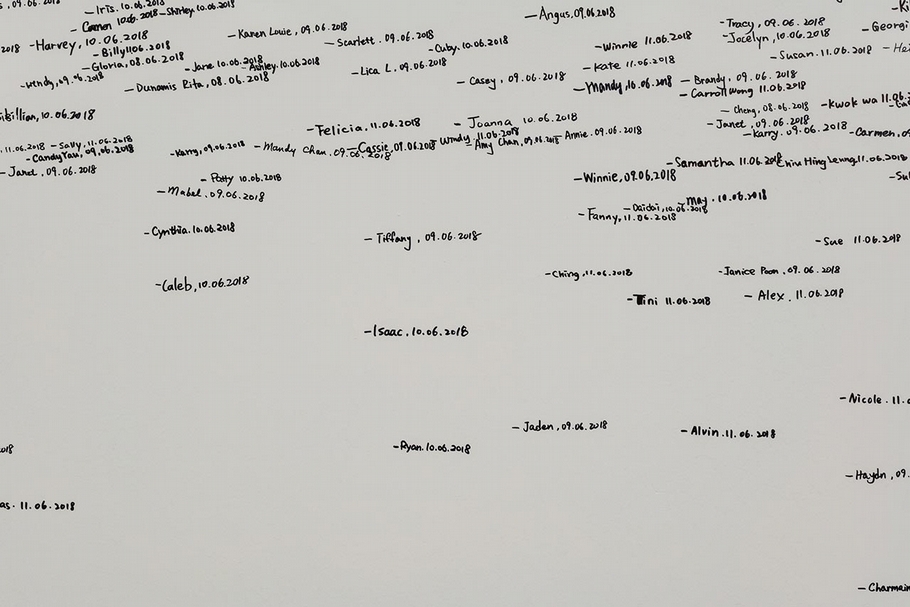 , 09.06.2018
-Iris.10.06.2018
-Carmen 10.06.2018
-Shirley.10.06.2018
2018
-Harvey,10.06.2018
-Billy 11.06.2018
-Gloria,08.06.2018
-Wendy,09.06.2018
-Karen Louie, 09.06.2018
-Jane 10.06.2018
-Ashley.10.06.2018
-Dunamis Rita, 08.06.2018
-Scarlett . 09.06.2018
-Lica L, 09.06.2018
-Cuby.10.06.2018
-Angus,09.06.2018
-Casey , 09.06.2018
-Winnie 11.06.2018
-Kate 11.06.2018
-Mandy,10.06.2018
-Tracy , 09.06.2018
-Jocelyn,10.06.2018
-Georgi
-Susan.11.06.2018
-Brandy, 09.06.2018
-Carroll Wong 11.06.2018
-Cheng,08.06.2018
-Kwok wa 11.06.
-Janet , 09.06.2018
-Karry. 09.06.2018
-Carmen, 09
illian, 10.06.2018
11.06.2018
-Sally, 11.06.2018
-Candy Yau, 09.06.2018
-Janet , 09.06.2018
-Felicia. 11.06.2018
-Joanna 10.06.2018
-Karry, 09.06.2018
-Mandy Chan. 09.06.2018
-Cassie, 09.06.2018
Windy . 11.06.2018
-Amy Chan, 09.06.2018
-Annie . 09.06.2018
-Patty 10.06.2018
-Mabel . 09.06.2018
-Winnie, 09.06.2018
-Samantha 11.06.2018
Chiu Hing Leung 11.06.2018
-Su
-May . 10.06.2018
-Daidai, 10.06.2018
-Fanny, 11.06.2018
-Cynthia.10.06.2018
-Tiffany , 09.06.2018
-Sue 11.06.2018
-Caleb, 10.06.2018
-Ching , 11.06.2018
-Janice Poon , 09.06.2018
-Tini 11.06.2018
-Alex . 11.06.2018
-Isaac , 10.06.2018
-Nicole . 11.0
-Jaden , 09.06.2018
-Alvin . 11.06.2018
018
-Ryan.10.06.2018
-Haydn , 09.
as. 11.06.2018
-Charmain